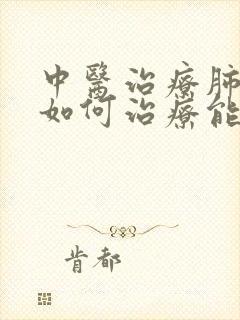 中醫治療肺
如何治療能
肯都